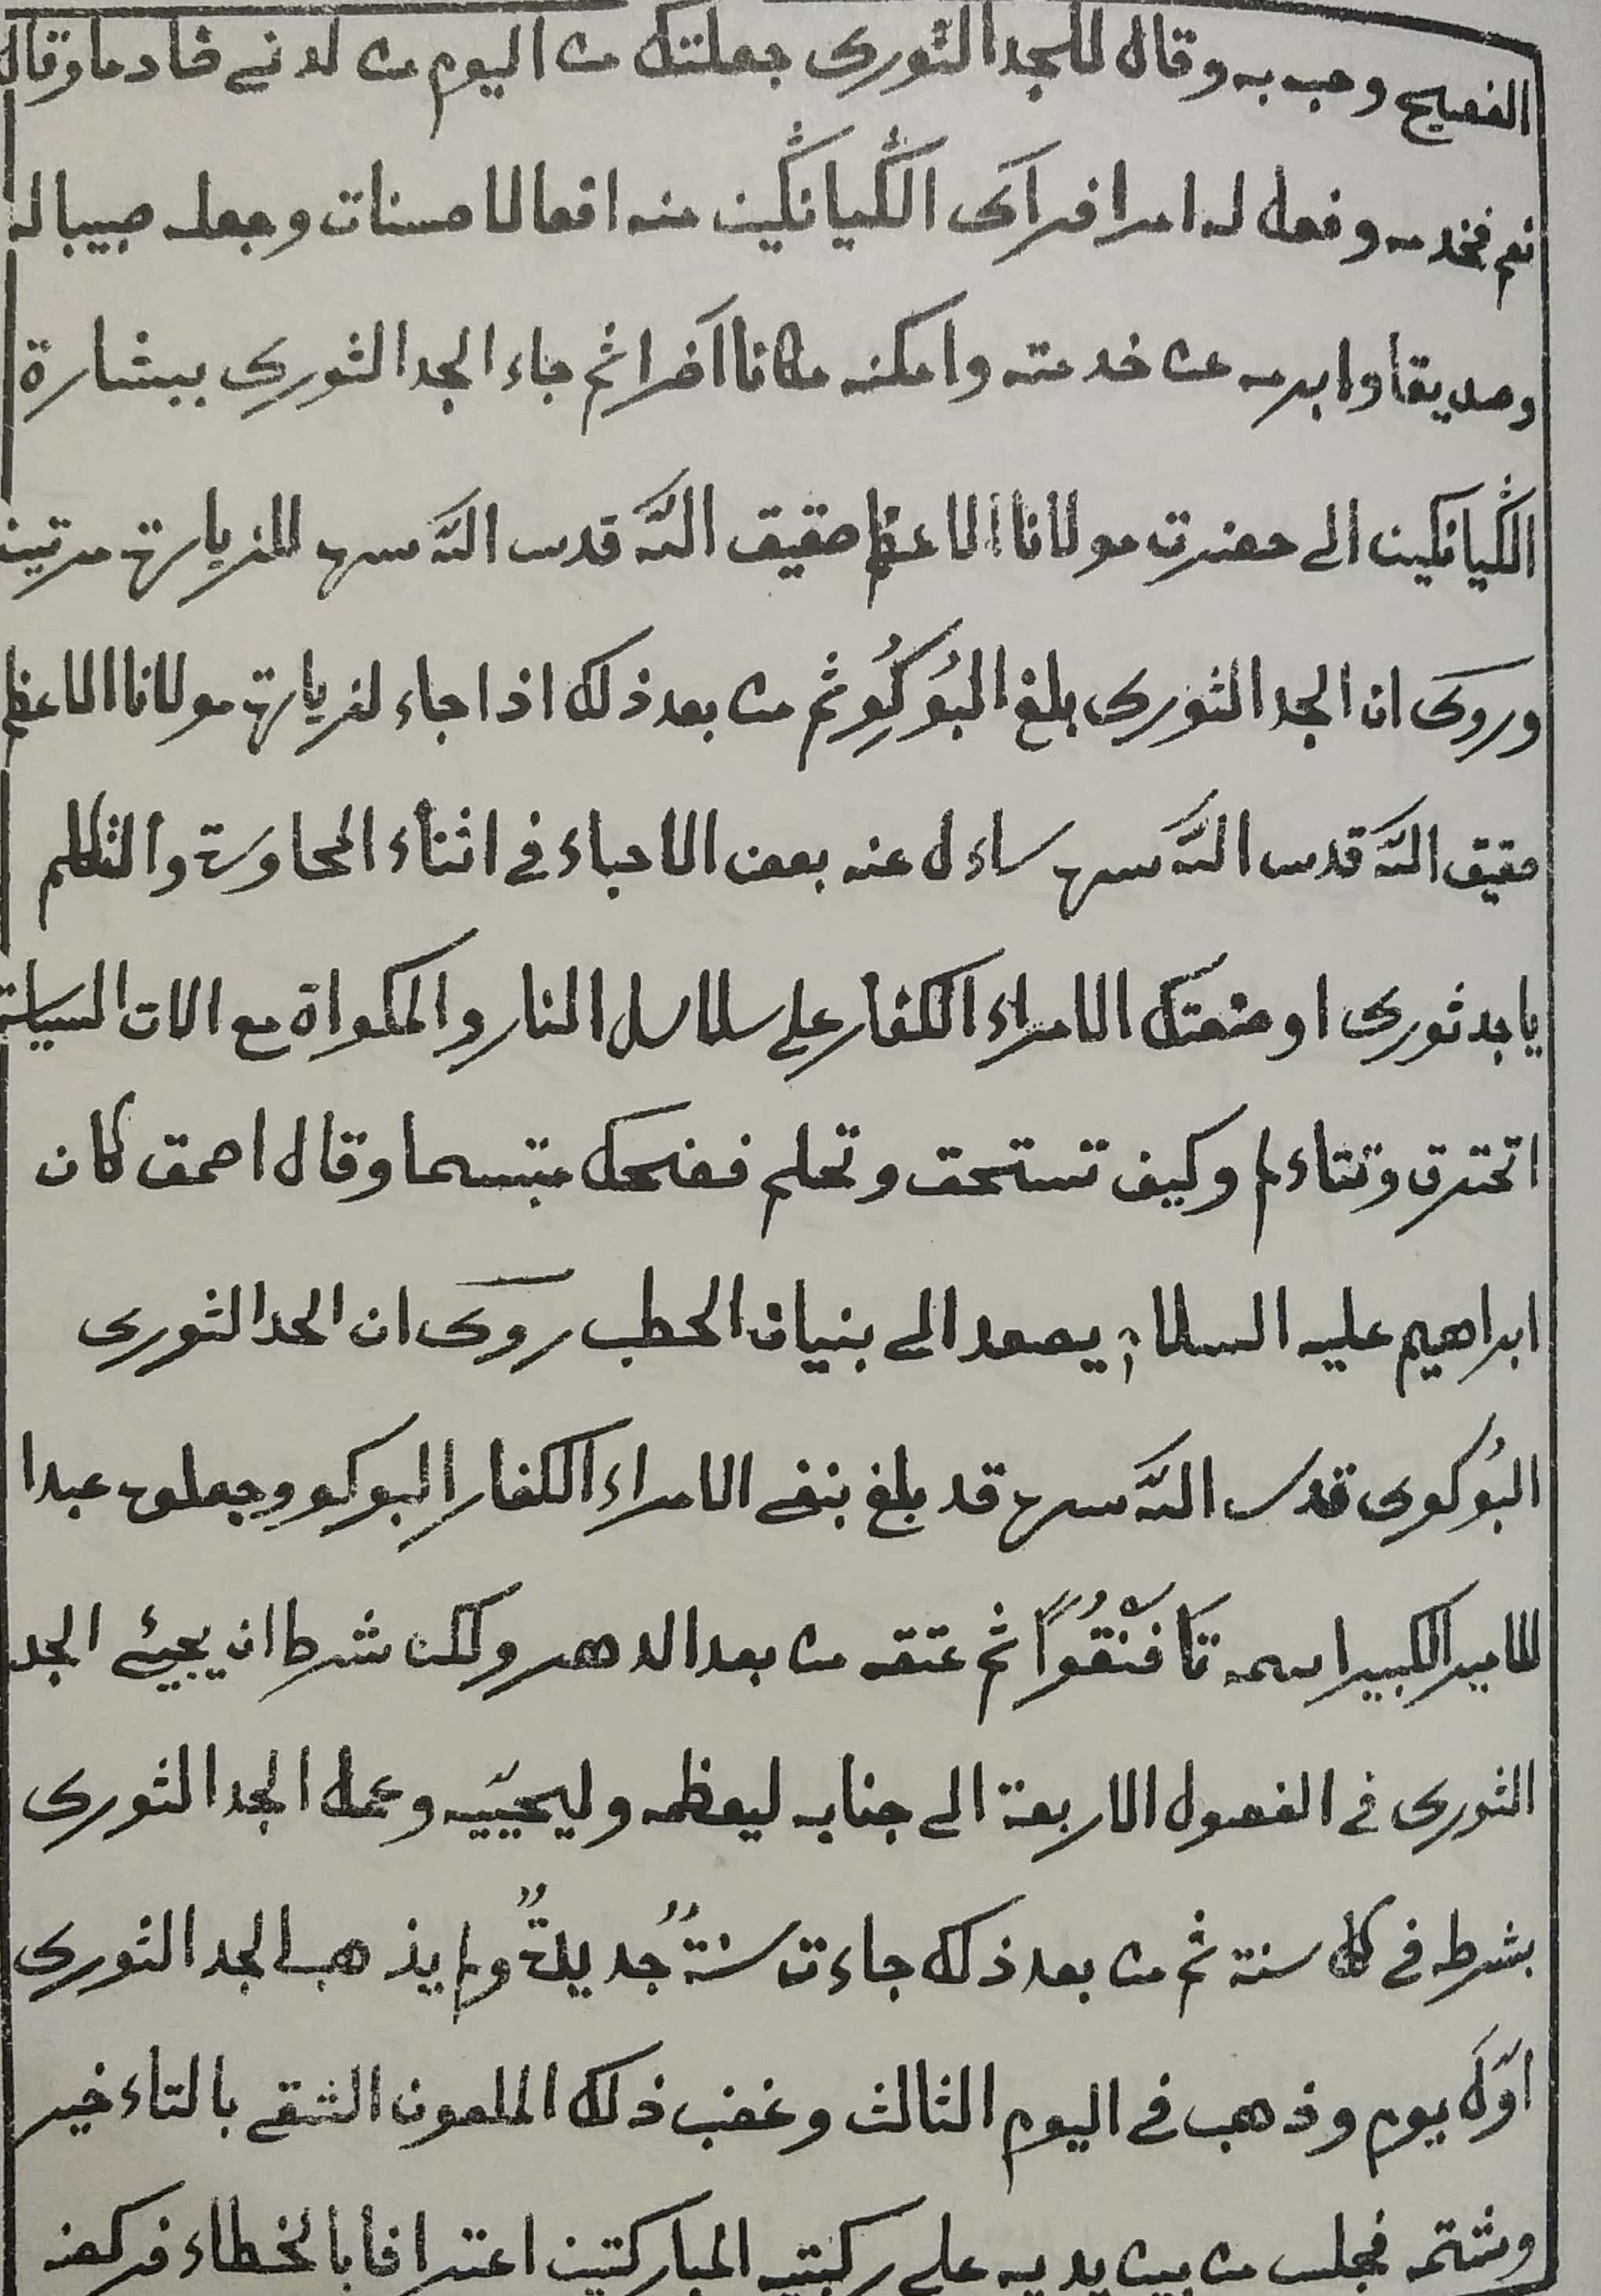 الفصيح وحب به وقال للجد الثوری جعلتك من اليوم من لدنے خادما وقال
نعم فخدمه وفعل له امرا فرآی الگيانگين منه افعالا حسنات وجعله حبيبا له
وصديقا وابرمه عن خدمته وامكنه مكانا آخرا ثم جاء الجد الثوری ببشارة
الگيانكين الے حضرت مولانا الاعظم حقيق اللّٰه قدس اللّٰه سره للزيارة مرتين
وروی ان الجد الثوری بلغ البُوكُو ثم من بعد ذلك اذا جاء لزيارة مولانا الاعظم
حقيق اللّٰه قدس اللّٰه سره ساءل عنه بعض الاحباء فے اثناء المحاورة والتكلم
يا جد ثوری اوضعتك الامراء الكفار علے سلاسل النار والمكواة مع الات السياسة
اتحترق وتتاءلم وكيف تستحق وتحلم فضحك متبسما وقال احمق كان
ابراهيم عليه السلام يصعد الے بنيان الحطب روی ان الجد الثوری
البُوكوی قدس اللّٰه سره قد بلغ بنفے الامراء الكفار البوكو وجعلوه عبدا
للامير الكبير اسمه تَافَنْقُوًا ثم عتقه من بعد الدهر ولكن شرط ان يجيئے الجد
الثوری فے الفصول الاربعة الے جنابه ليعظمه وليحيّيه وعمل الجد الثوری
بشرطه فے كل سنة ثم من بعد ذلك جاءت سنةٌ جديدةٌ ولم يذهب الجد الثوری
اوّل يوم وذهب فے اليوم الثالث وغضب ذلك الملعون الشقے بالتاءخير
وشتمه فجلس من بين يديه علے ركبتيه المباركتين اعترافا بالخطاء فركضه